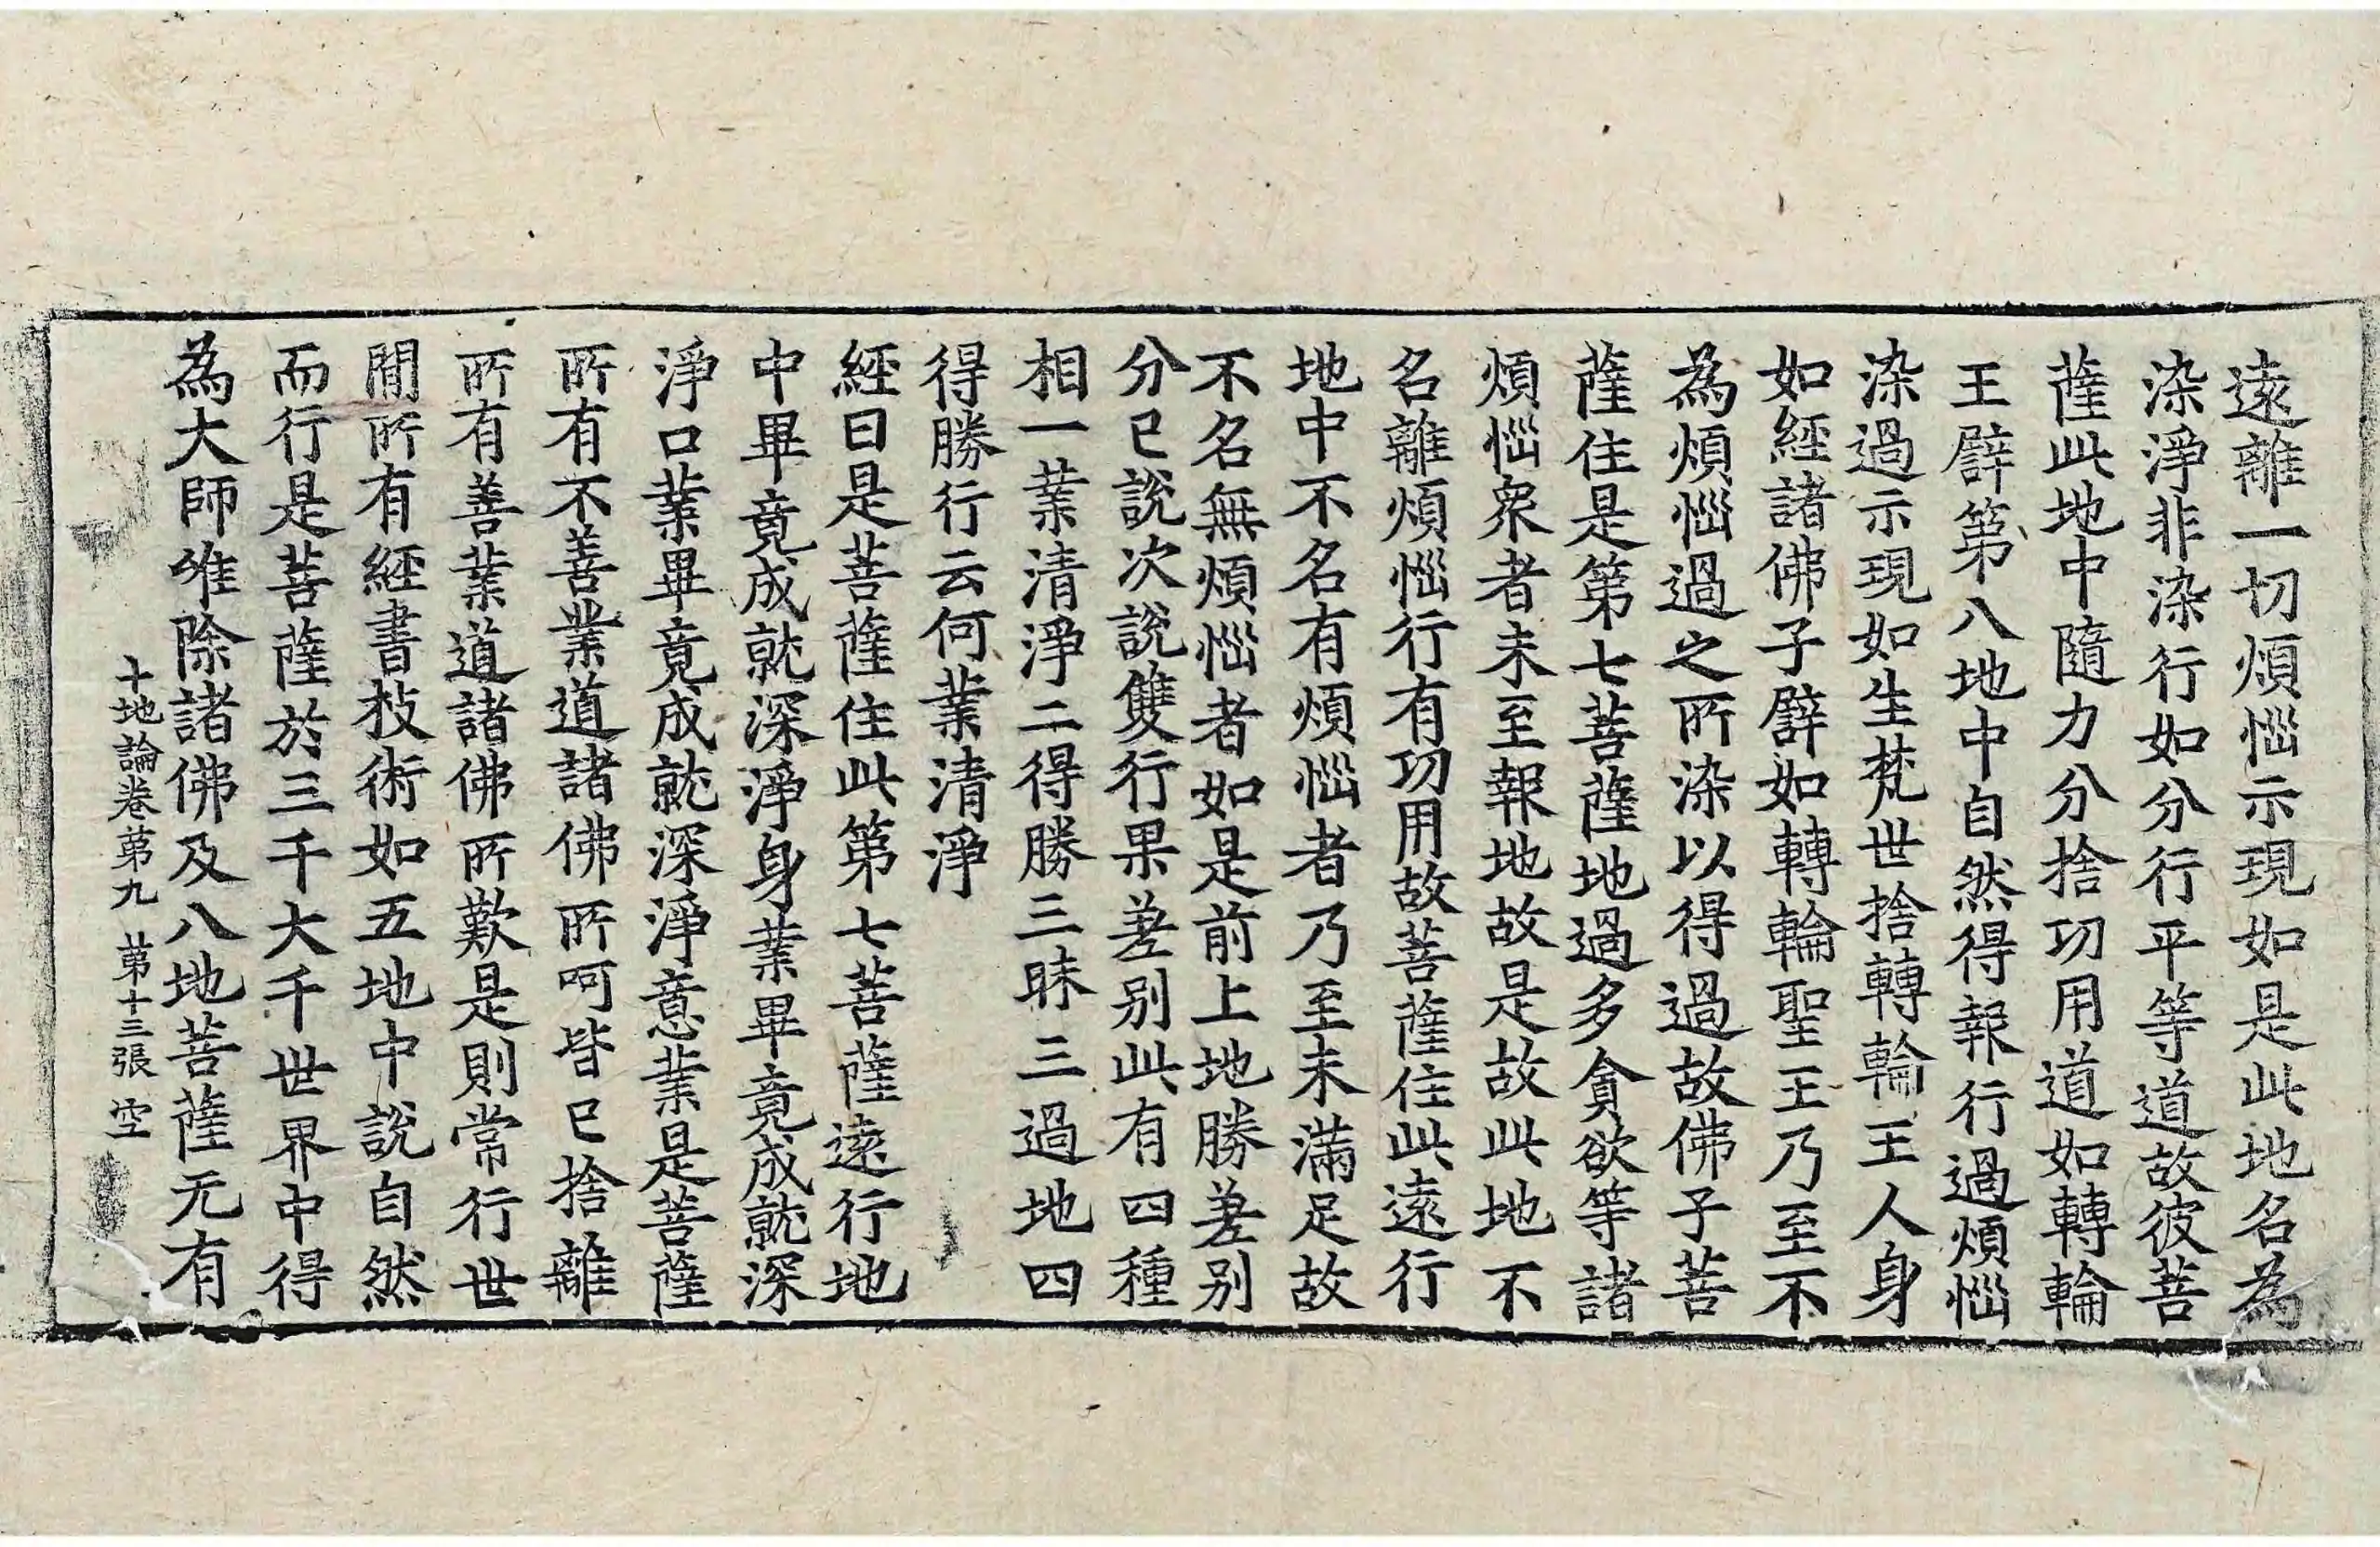 遠離一切煩惱示現如是此地名為
染淨非染行如分行平等道故彼菩
薩此地中隨力分捨功用道如轉輪
王譬第八地中自然得報行過煩惱
染過示現如生梵世捨轉輪王人身
如經諸佛子譬如轉輪聖王乃至不
為煩惱過之所染以得過故佛子菩
薩住是第七菩薩地過多貪欲等諸
煩惱衆者未至報地故是故此地不
名離煩惱行有功用故菩薩住此遠行
地中不名有煩惱者乃至未滿足故
不名無煩惱者如是前上地勝差别
分已說次說雙行果差别此有四種
相一業清淨二得勝三昧三過地四
得勝行云何業清淨
經曰是菩薩住此第七菩薩遠行地
中畢竟成就深淨身業畢竟成就深
淨口業畢竟成就深淨意業是菩薩
所有不善業道諸佛所呵皆已捨離
所有善業道諸佛所歎是則常行世
間所有經書技術如五地中說自然
而行是菩薩於三千大千世界中得
為大師唯除諸佛及八地菩薩无有
十地論卷第九 第十三張 空